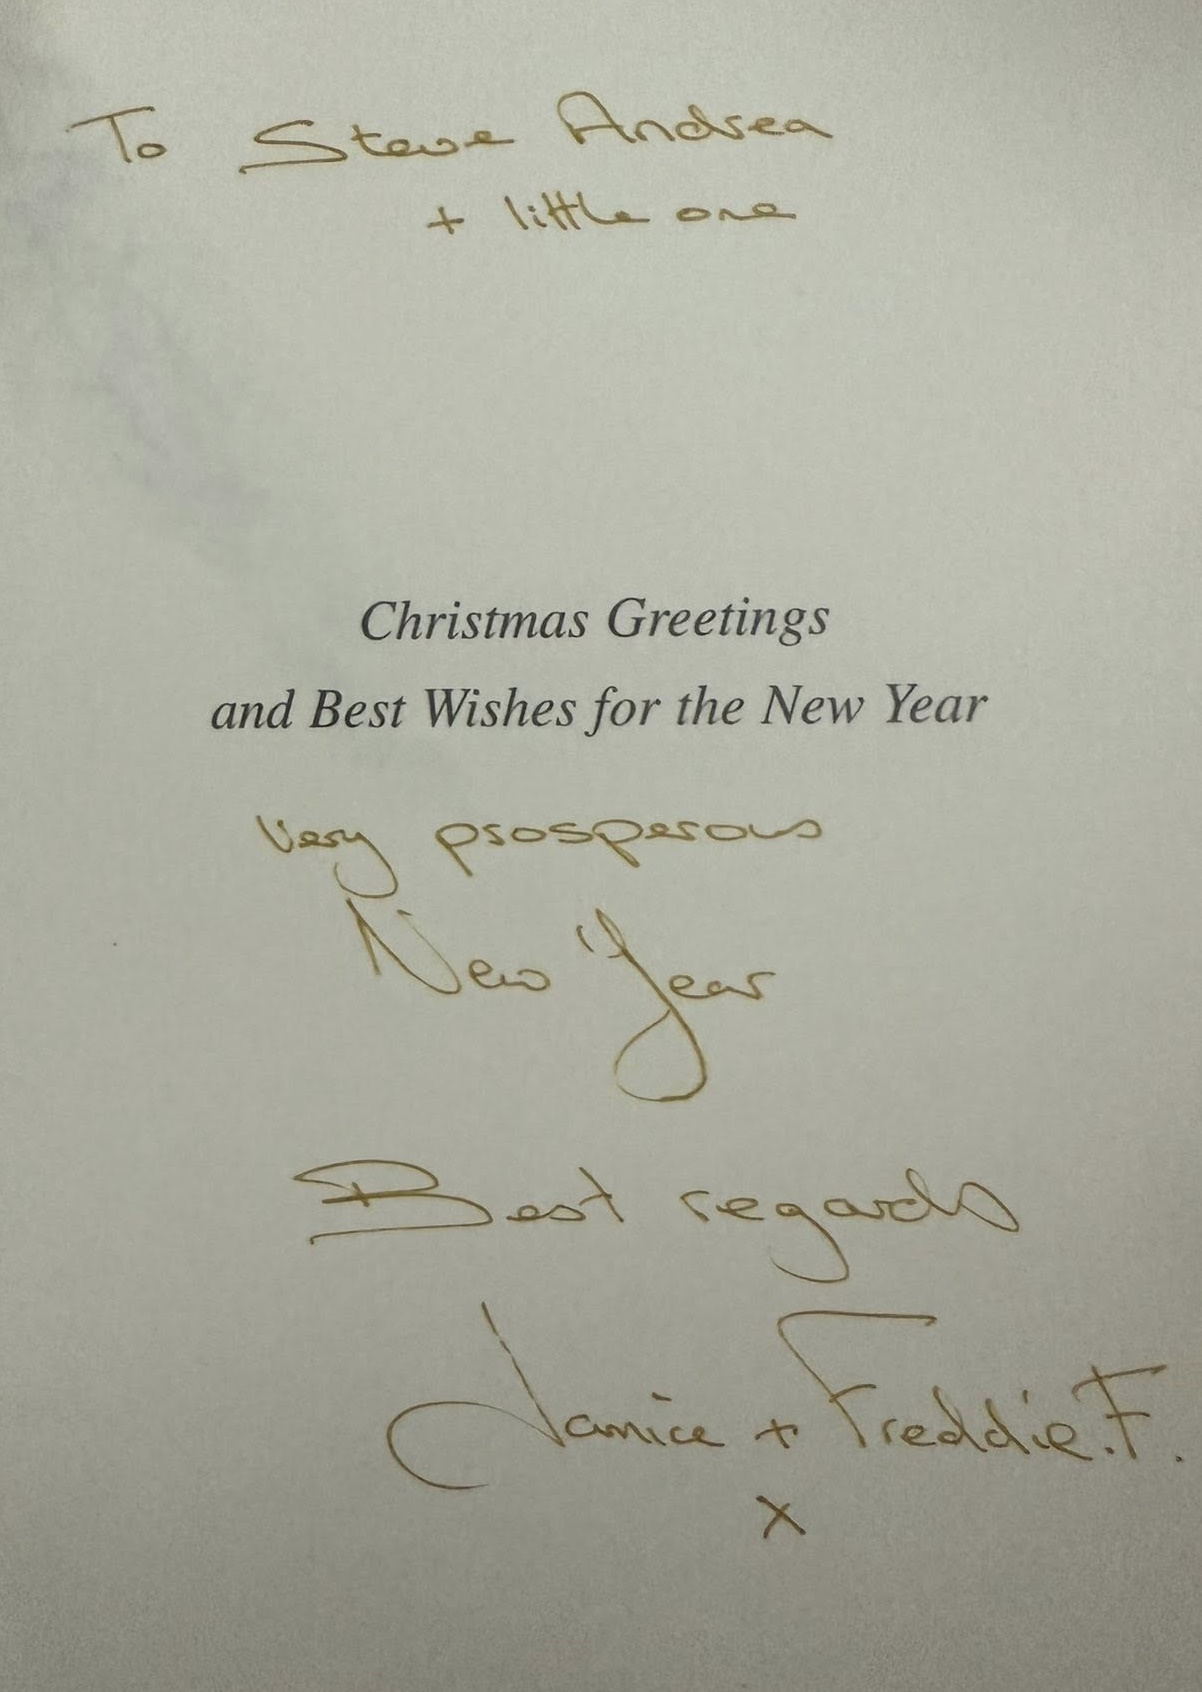 To Steve Andrea
+ little one
Christmas Greetings
and Best Wishes for the New Year
Very prosperous
New Year
Best regards
Janice + Freddie.F.
x